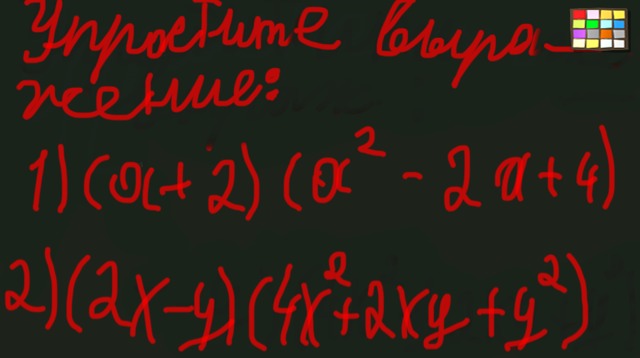 Упростите выра-
жение:
1) (a + 2) (a² - 2a + 4)
2) (2x - y) (4x² + 2xy + y²)